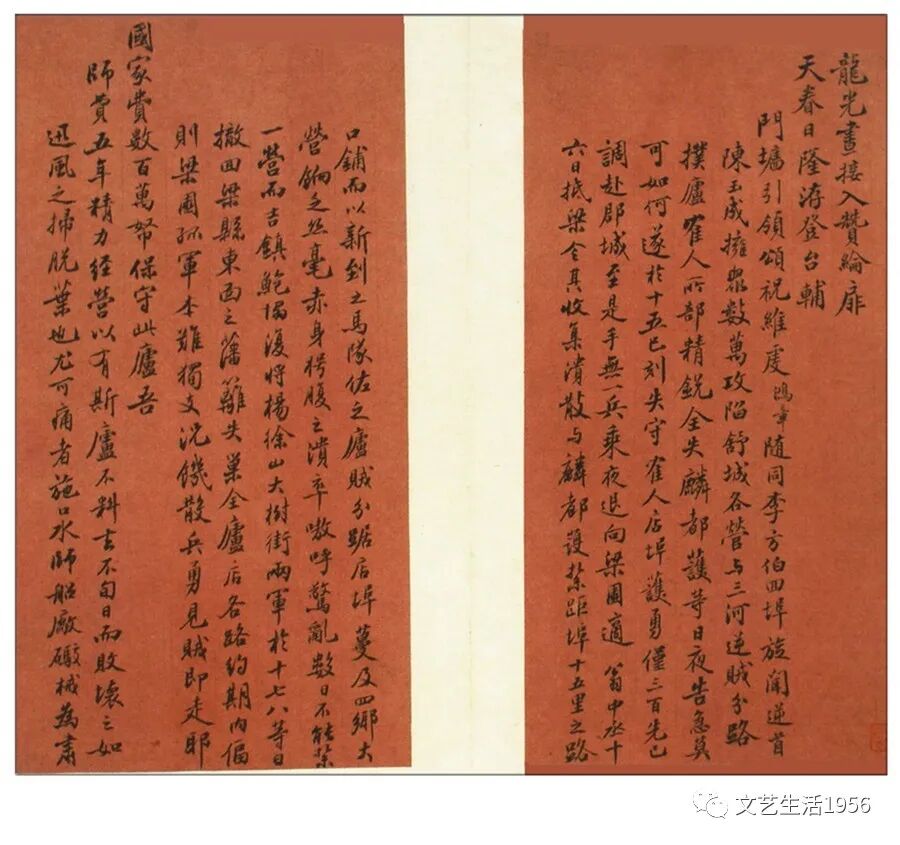 龍光晝接入贊綸扉
天春日隆洊登台輔
門墻引領頌祝維虔鴻章隨同李方伯回埠旋聞逆首
陳玉成擁眾數萬攻陷舒城各營与三河逆賊分路
撲廬寉人所部精銳全失麟都護等日夜告急莫
可如何遂於十五巳刻失守寉人店埠護勇僅三百先已
調赴郡城至是手無一兵乘夜退向梁園適翁中丞十
六日抵梁令其收集潰散与麟都護紮距埠十五里之路
口鋪而以新到之馬隊佐之廬賊分踞店埠蔓及四鄉大
營餉乏丝毫赤身枵腹之潰卒嗷呼驚亂數日不能紮
一營而吉鎮鮑楊復將楊徐山大樹街兩軍於十七八等日
撤回梁縣東西之藩籬失巢全廬店各路約期內偪
則梁園孤軍本難獨支況饑散兵勇見賊即走耶
國家費數百萬帑保守此廬吾
師費五年精力經營以有斯廬不料去不旬日而敗壞之如
迅風之掃脫葉也尤可痛者施口水師船廠礮械為肅
文艺生活1956